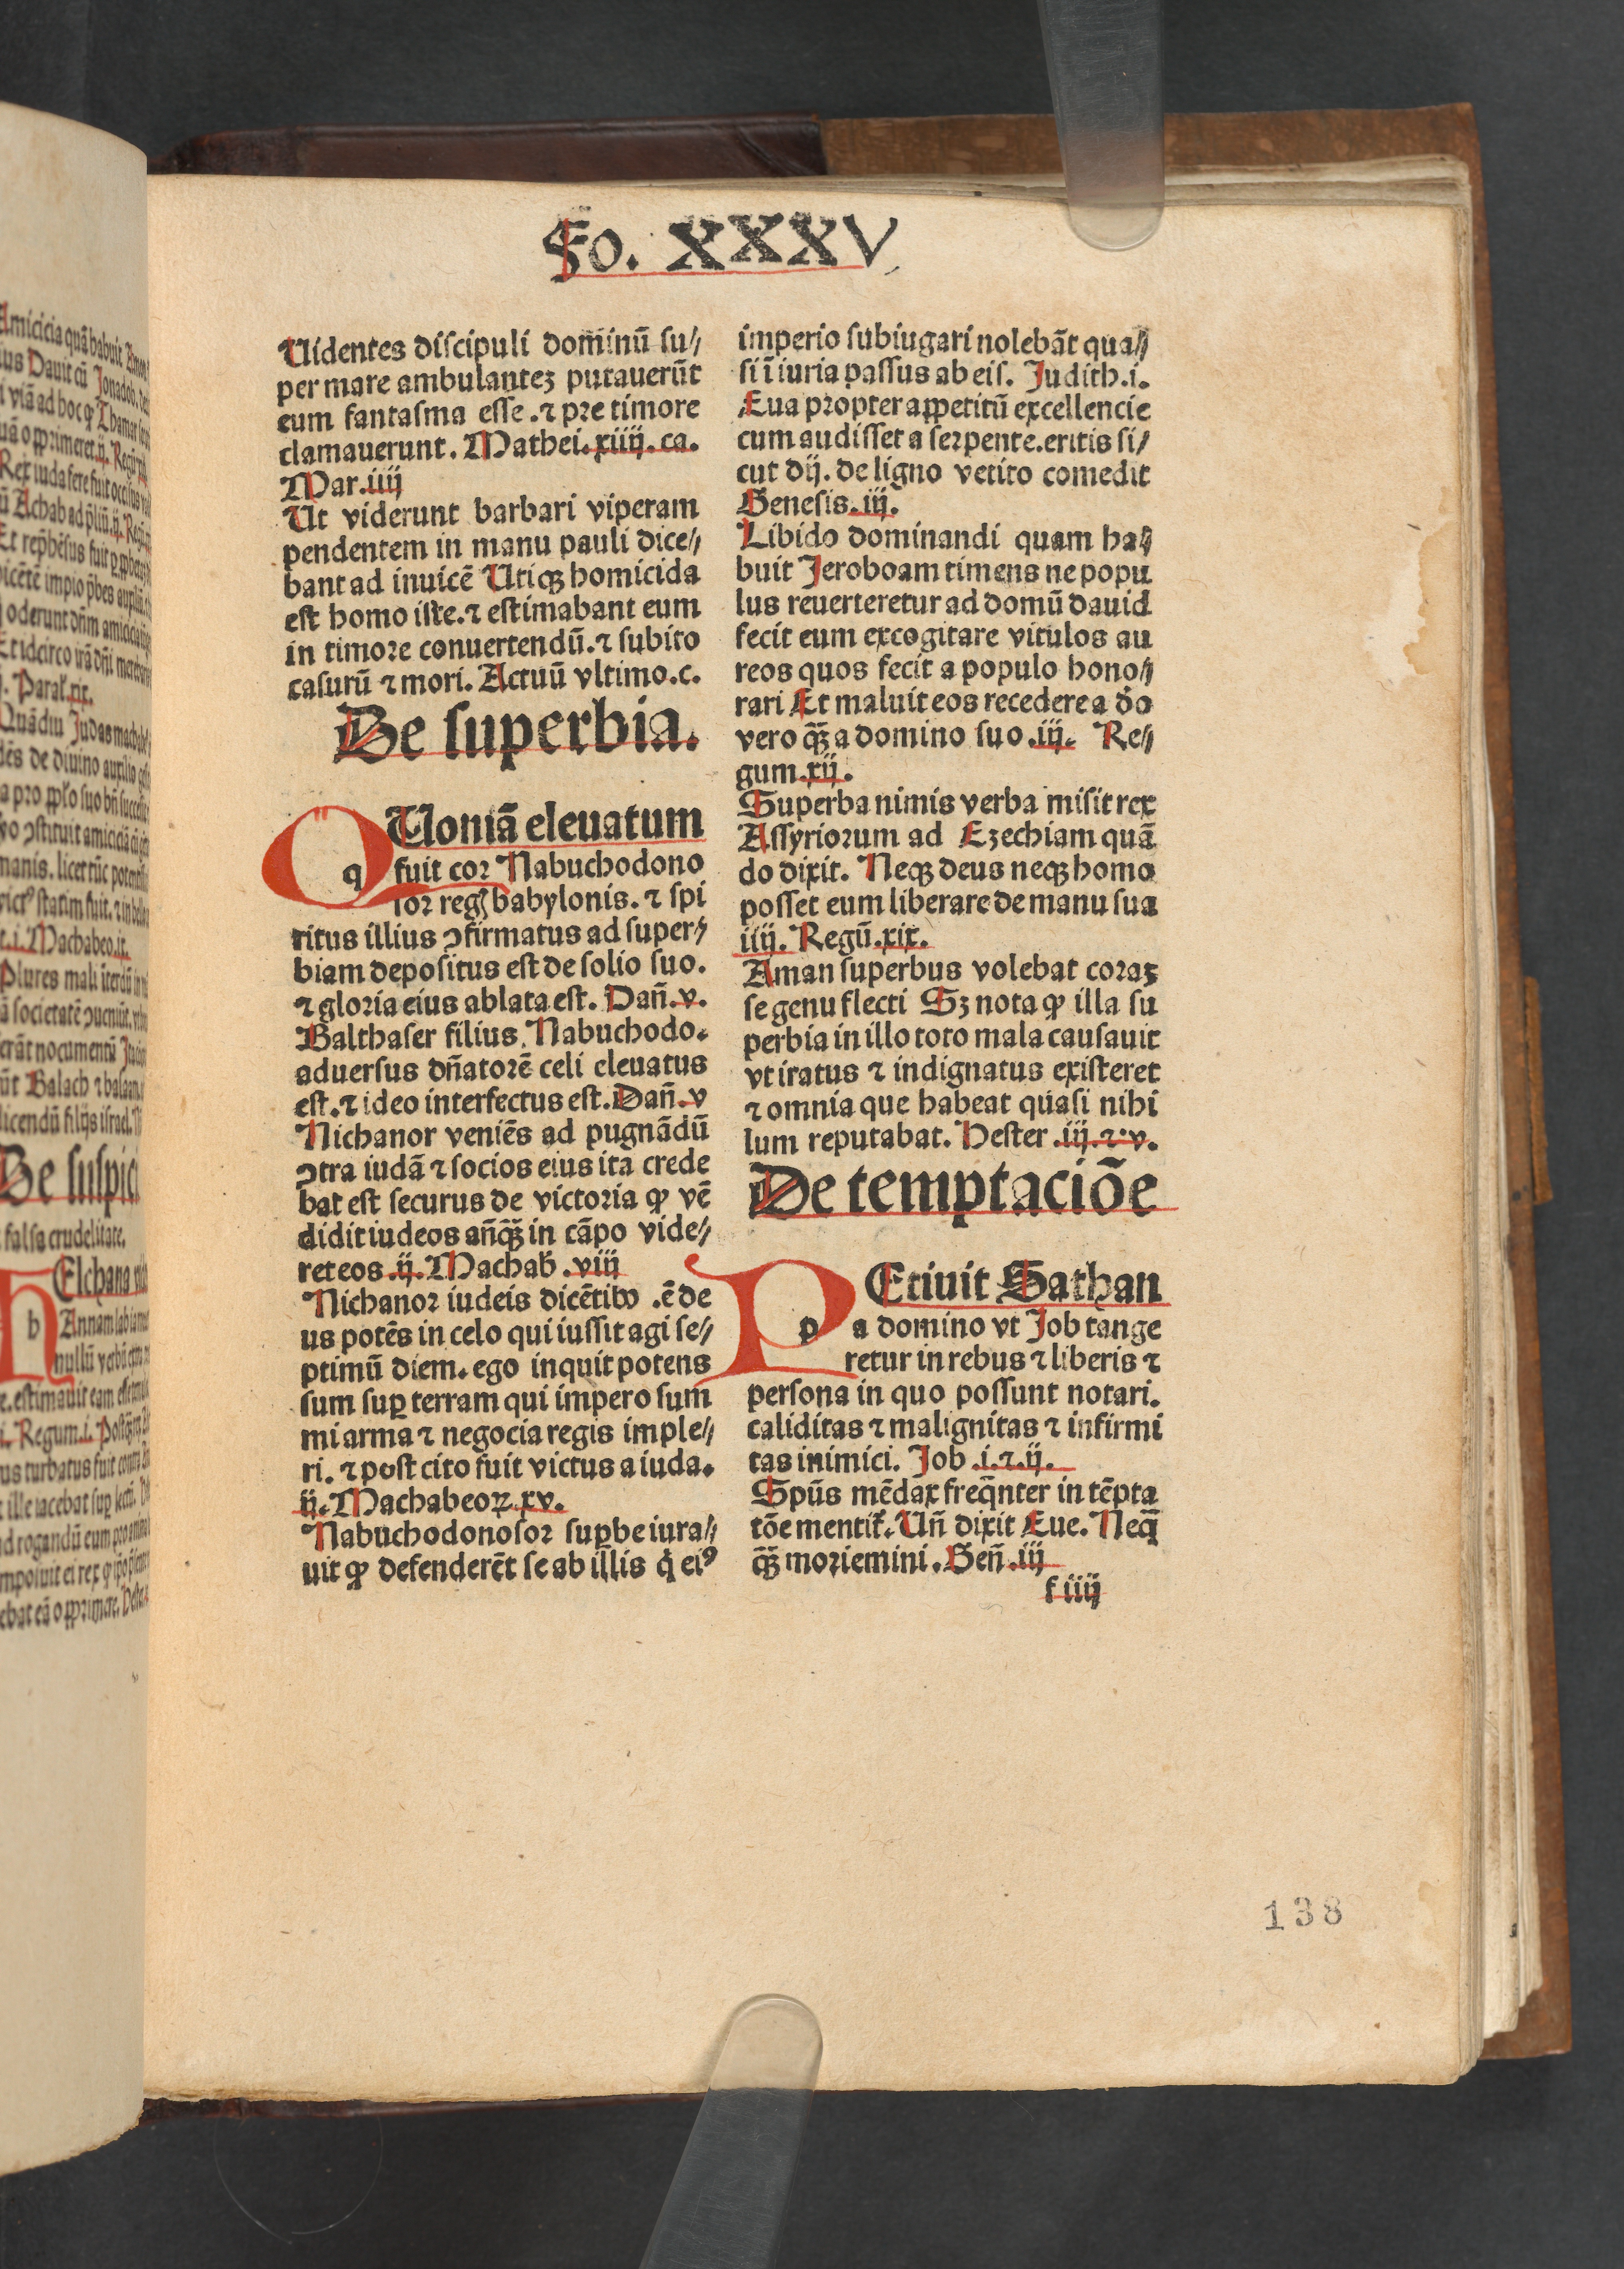 Fo. XXXV
Uidentes discipuli dominū su//
per mare ambulantez putauerūt
eum fantasma esse. ⁊ pre timore
clamauerunt. Mathei. xiiij. ca.
Mar. iiij
Ut viderunt barbari viperam
pendentem in manu pauli dice//
bant ad inuicē Utiqꝫ homicida
est homo iste. ⁊ estimabant eum
in timore conuertendū. ⁊ subito
casurū ⁊ mori. Actuū vltimo. c.
De superbia.
QUoniā eleuatum
q fuit cor Nabuchodono
sor regꝭ babylonis. ⁊ spi
ritus illius ↄfirmatus ad super//
biam depositus est de solio suo.
⁊ gloria eius ablata est. Dan̄. v.
Balthaser filius Nabuchodo.
aduersus dn̄atorē celi eleuatus
est. ⁊ ideo interfectus est. Dan̄. v
Nichanor veniēs ad pugnādū
ↄtra iudā ⁊ socios eius ita crede
bat est securus de victoria ꝙ vē
didit iudeos an̄qꝫ̄ in cāpo vide//
ret eos ij. Machab̄. viij
Nichanor iudeis dicētibꝰ . ē de
us potēs in celo qui iussit agi se//
ptimū diem. ego inquit potens
sum suꝑ terram qui impero sum
mi arma ⁊ negocia regis imple//
ri. ⁊ post cito fuit victus a iuda.
ij. Machabeoꝝ xv.
Nabuchodonosor suꝑbe iura//
uit ꝙ defenderēt se ab illis q̇ eiꝰ
imperio subiugari nolebāt qua//
si īiuria passus ab eis. Judith. i.
Eua propter appetitū excellencie
cum audisset a serpente. eritis si/
cut dij. de ligno vetito comedit
Genesis. iij.
Libido dominandi quam ha//
buit Jeroboam timens ne popu
lus reuerteretur ad domū dauid
fecit eum excogitare vitulos au
reos quos fecit a populo hono//
rari Et maluit eos recedere a d̄o
vero qꝫ̄ a domino suo. iij. Re//
gum. xij.
Superba nimis verba misit rex
Assyriorum ad Ezechiam quā
do dixit. Neqꝫ deus neqꝫ homo
posset eum liberare de manu sua
iiij. Regū. xix.
Aman superbus volebat coraꝫ
se genu flecti Sꝫ nota ꝙ illa su
perbia in illo toto mala causauit
vt iratus ⁊ indignatus existeret
⁊ omnia que habeat quasi nihi
lum reputabat. Hester. iij. ⁊. v.
De temptaciōe
PEtiuit Sathan
p a domino vt Job tange
retur in rebus ⁊ liberis ⁊
persona in quo possunt notari.
caliditas ⁊ malignitas ⁊ infirmi
tas inimici. Job. i. ⁊. ij.
Spūs mēdax freq̄nter in tēpta
tōe mentit̄. Un̄ dixit Eue. Neq̄
qꝫ̄ moriemini. Gen̄. iij
f iiij
138